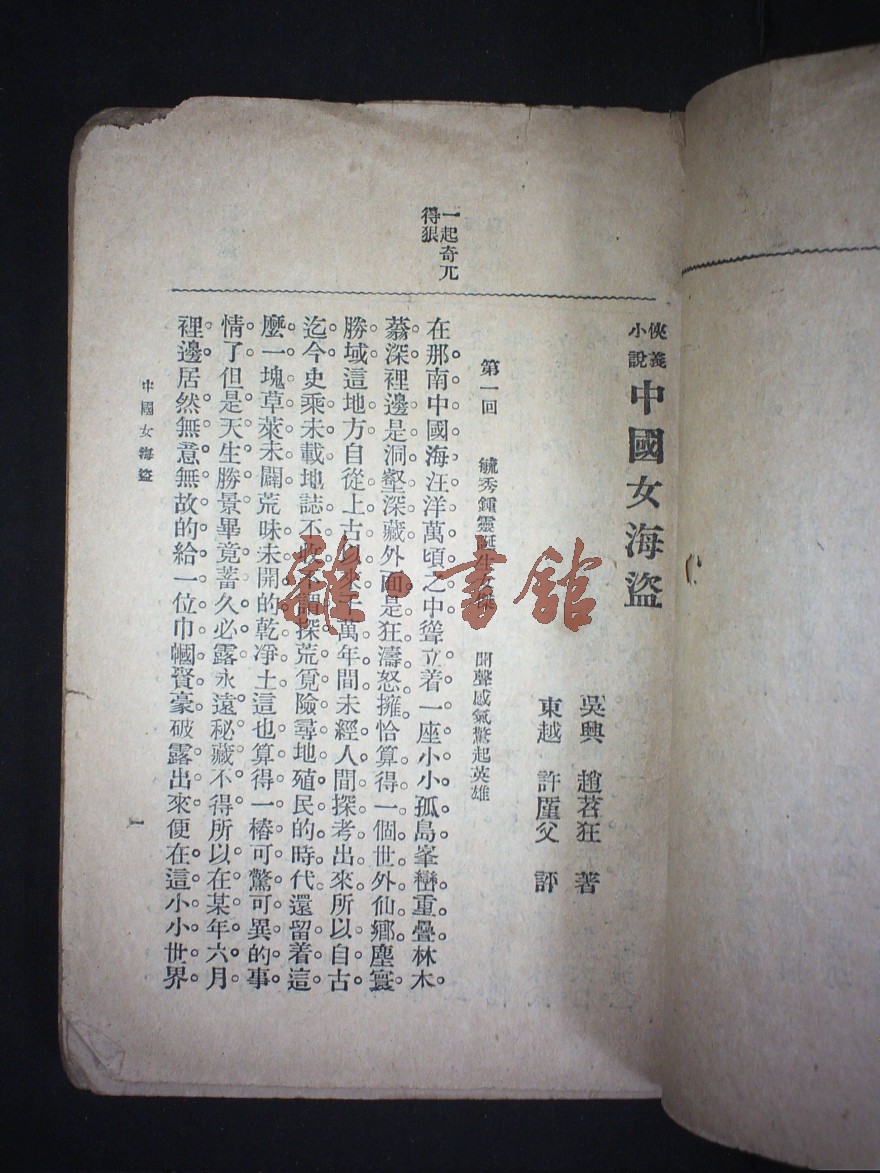 俠義小說
中國女海盜
吳興 趙苕狂 著
東越 許廑父 評
第一回 毓秀鍾靈誕生女傑 聞聲感氣驚起英雄
一起奇兀
得狠
在那南中國海汪洋萬頃之中聳立着一座小小孤島峯巒重疊林木
蓊深裡邊是洞壑深藏外面是狂濤怒擁恰算得一個世外仙鄉塵寰
勝域這地方自從上古以來千萬年間未經人間探考出來所以自古
迄今史乘未載地誌不收不謂探荒覓險尋地殖民的時代還留着這
麼一塊草萊未闢荒昧未開的乾净土這也算得一樁可驚可異的事
情了但是天生勝景畢竟蓄久必露永遠秘藏不得所以在某年六月
裡邊居然無意無故的給一位巾幗賢豪破露出來便在這小小世界
中國女海盜
一
雜·書館